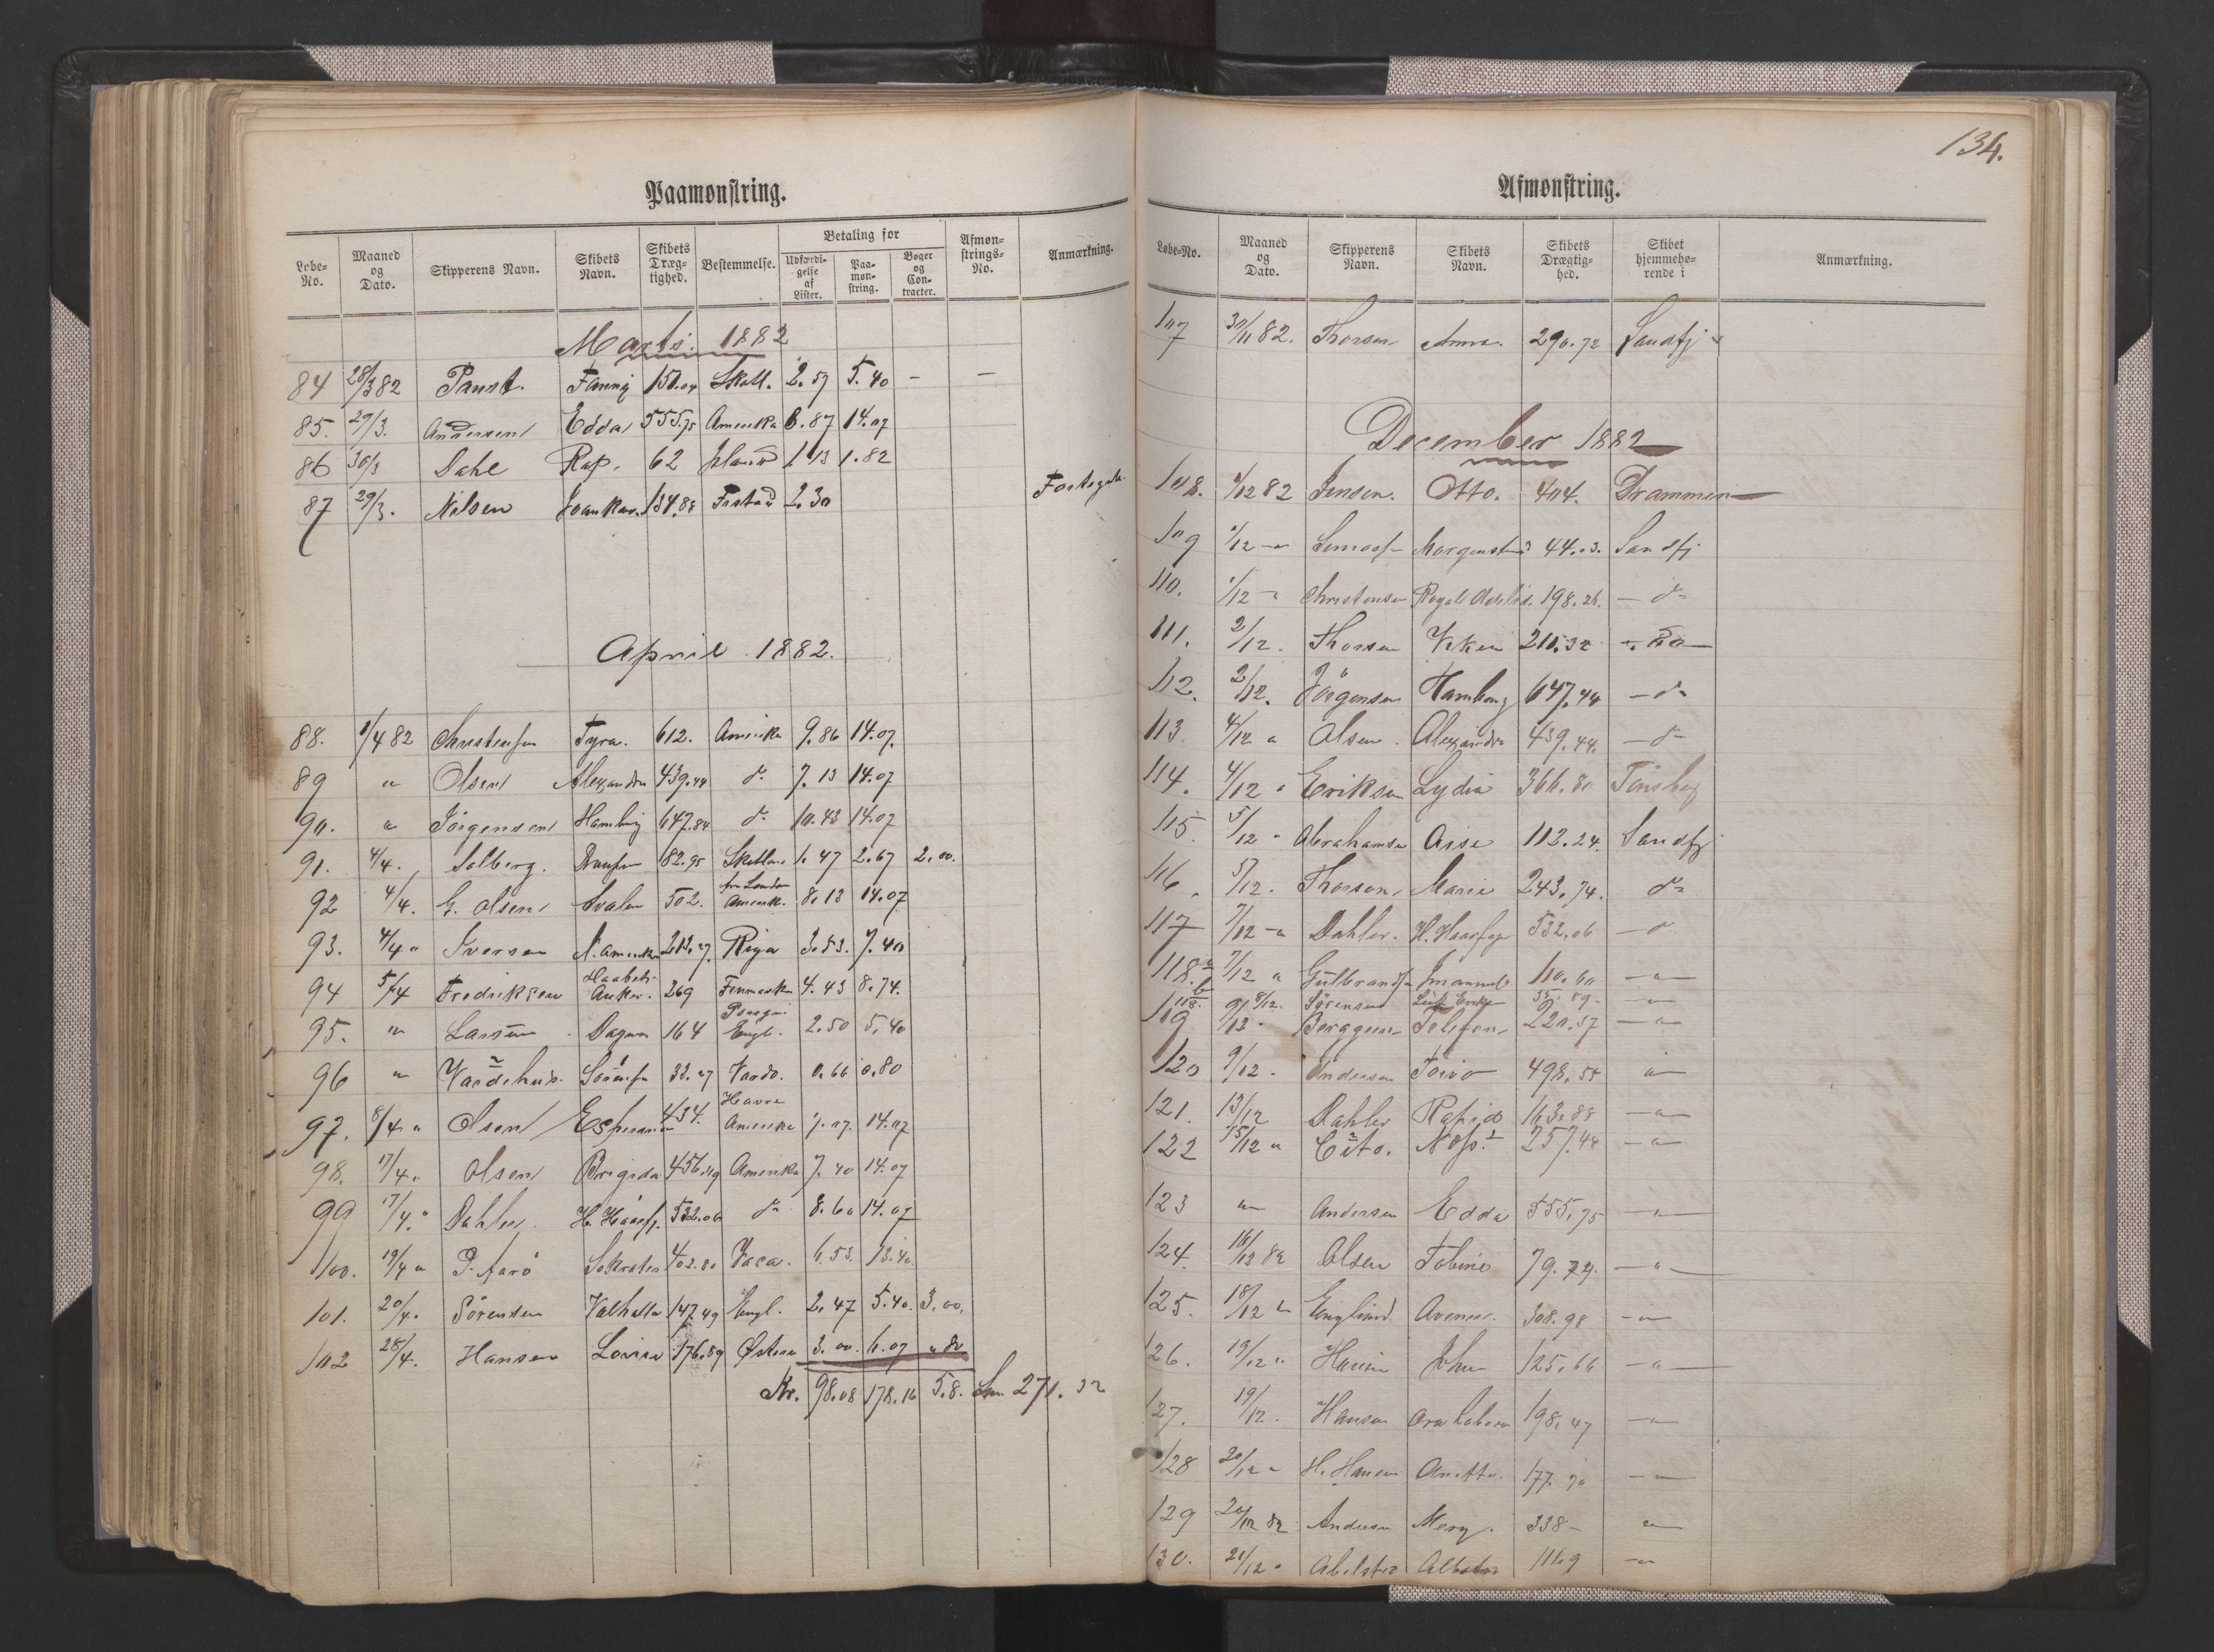 Paamonstring.
Løbe-No. Maaned og Dato. Skipperens Navn. Skibets Navn. Skibets Dræg-tighed. Bestemmelse. Betaling for Udfærdi-gelse af Lister. Paa-mon-string. Bøger og Con-tracter. Afmøn-strings-No. Anmærkning.
Marts. 1882
84 28/3 82 Paust. Fanny 150.04 Skotl. 2.59 5.40 – –
85. 29/3. Andersen Edda 555.75 Amerika 8.87 14.07
86 30/3 Dahl Rap. 62 Island 1.13 1.82
87 29/3. Nilsen 134.88 2.30
April 1882.
88. 1/4 82 Christensen Tyra. 612. Amerika 9.86 14.07.
89 " Olsen Alexandra 439.44 do 7.13 14.07
90. " Jörgensen Hamburg 647.84 do 10.43 14.07
91. 4/4. Solberg. 182.95 Skotland 1.47 2.67 2.00.
92 4/4. G. Olsen Svalen 502. fra London Amerik. 8.13 14.07
93. 4/4 " Iversen N. Amerika 213.27. Riga 3.53. 7.40
94 5/4 Fredriksen Haabets Anker. 269 Finmarken 4.43 8.74.
95. " Larsen Dagmar 164 Engl. 2.50 5.40
96 " Vardehus. 33.27 Vardö. 0.66 0.80
97. 8/4 " Olsen Esperance 434. Havre Amerika 7.07. 14.07
98. 17/4. Olsen Brigida 456.49 Amerika 7.40 14.07
99 17/4. " Dahler. H. Haarfg. 532.06 do 8.60 14.07
100. 19/4 " P. Aarö Sokrates 402.80 6.53. 13.40
101. 20/4. Sörensen Valhalla 147.49 Engl. 2.47 5.40. 3.00.
102 28/4. Hansen Lovise 176.89 3.00. 6.07 " 80
Kr. 98.08 178.16 5.8. 271.32
134.
Afmonstring.
Løbe-No. Maaned og Dato. Skipperens Navn. Skibets Navn. Skibets Drægtig-hed. Skibet hjemmehø-rende i Anmærkning.
107 30/11 82. Thorsen Anna. 290.72 Sandfj
December 1882
108. 1/12 82 Jensen. Otto. 404. Drammen
109 1/12 – " 44.03. Sandfj
110. 1/12 – " Christensen 198.26. – do
111. 2/12. Thorsen Viken 210.32 – do –
112. 2/12. Jörgensen Hamburg 647.44 – do
113. 4/12 " Olsen. Alexandra 439.44. – do
114. 4/12 " Eriksen Lydia 366.80 Tönsberg
115. 5/12 " Abrahamsen 112.24. Sandfj
116. 5/12. Thorsen Marie 243.74. do
117 7/12 – " Dahler. H. Haarfager 532.06 – do
118.a 7/12 " Gulbrandsen Immanuel 110.60 – " –
118.b 8/12. Sörensen 35.89. – " –
119 9/12. Berggren Telefon 220.37 – " –
120 9/12. Andersen Toivo 498.55 "
121. 13/12 Dahler Rapid 163.88 – " –
122 15/12 " 257.44 – " –
123 " Andersen Edda 555.75 – " –
124. 16/12 82 Olsen Tobine 79.74. – " –
125. 18/12 " Englund 308.98 – " –
126. 19/12 " Hansen John 125.66 – " –
127. 19/12. Hansen 198.47 – " –
128 20/12 " H. Hansen Anette. 177.70 – " –
129 20/12 82 Andersen Mary. 338 – "
130. 21/12 " 1169 – " –